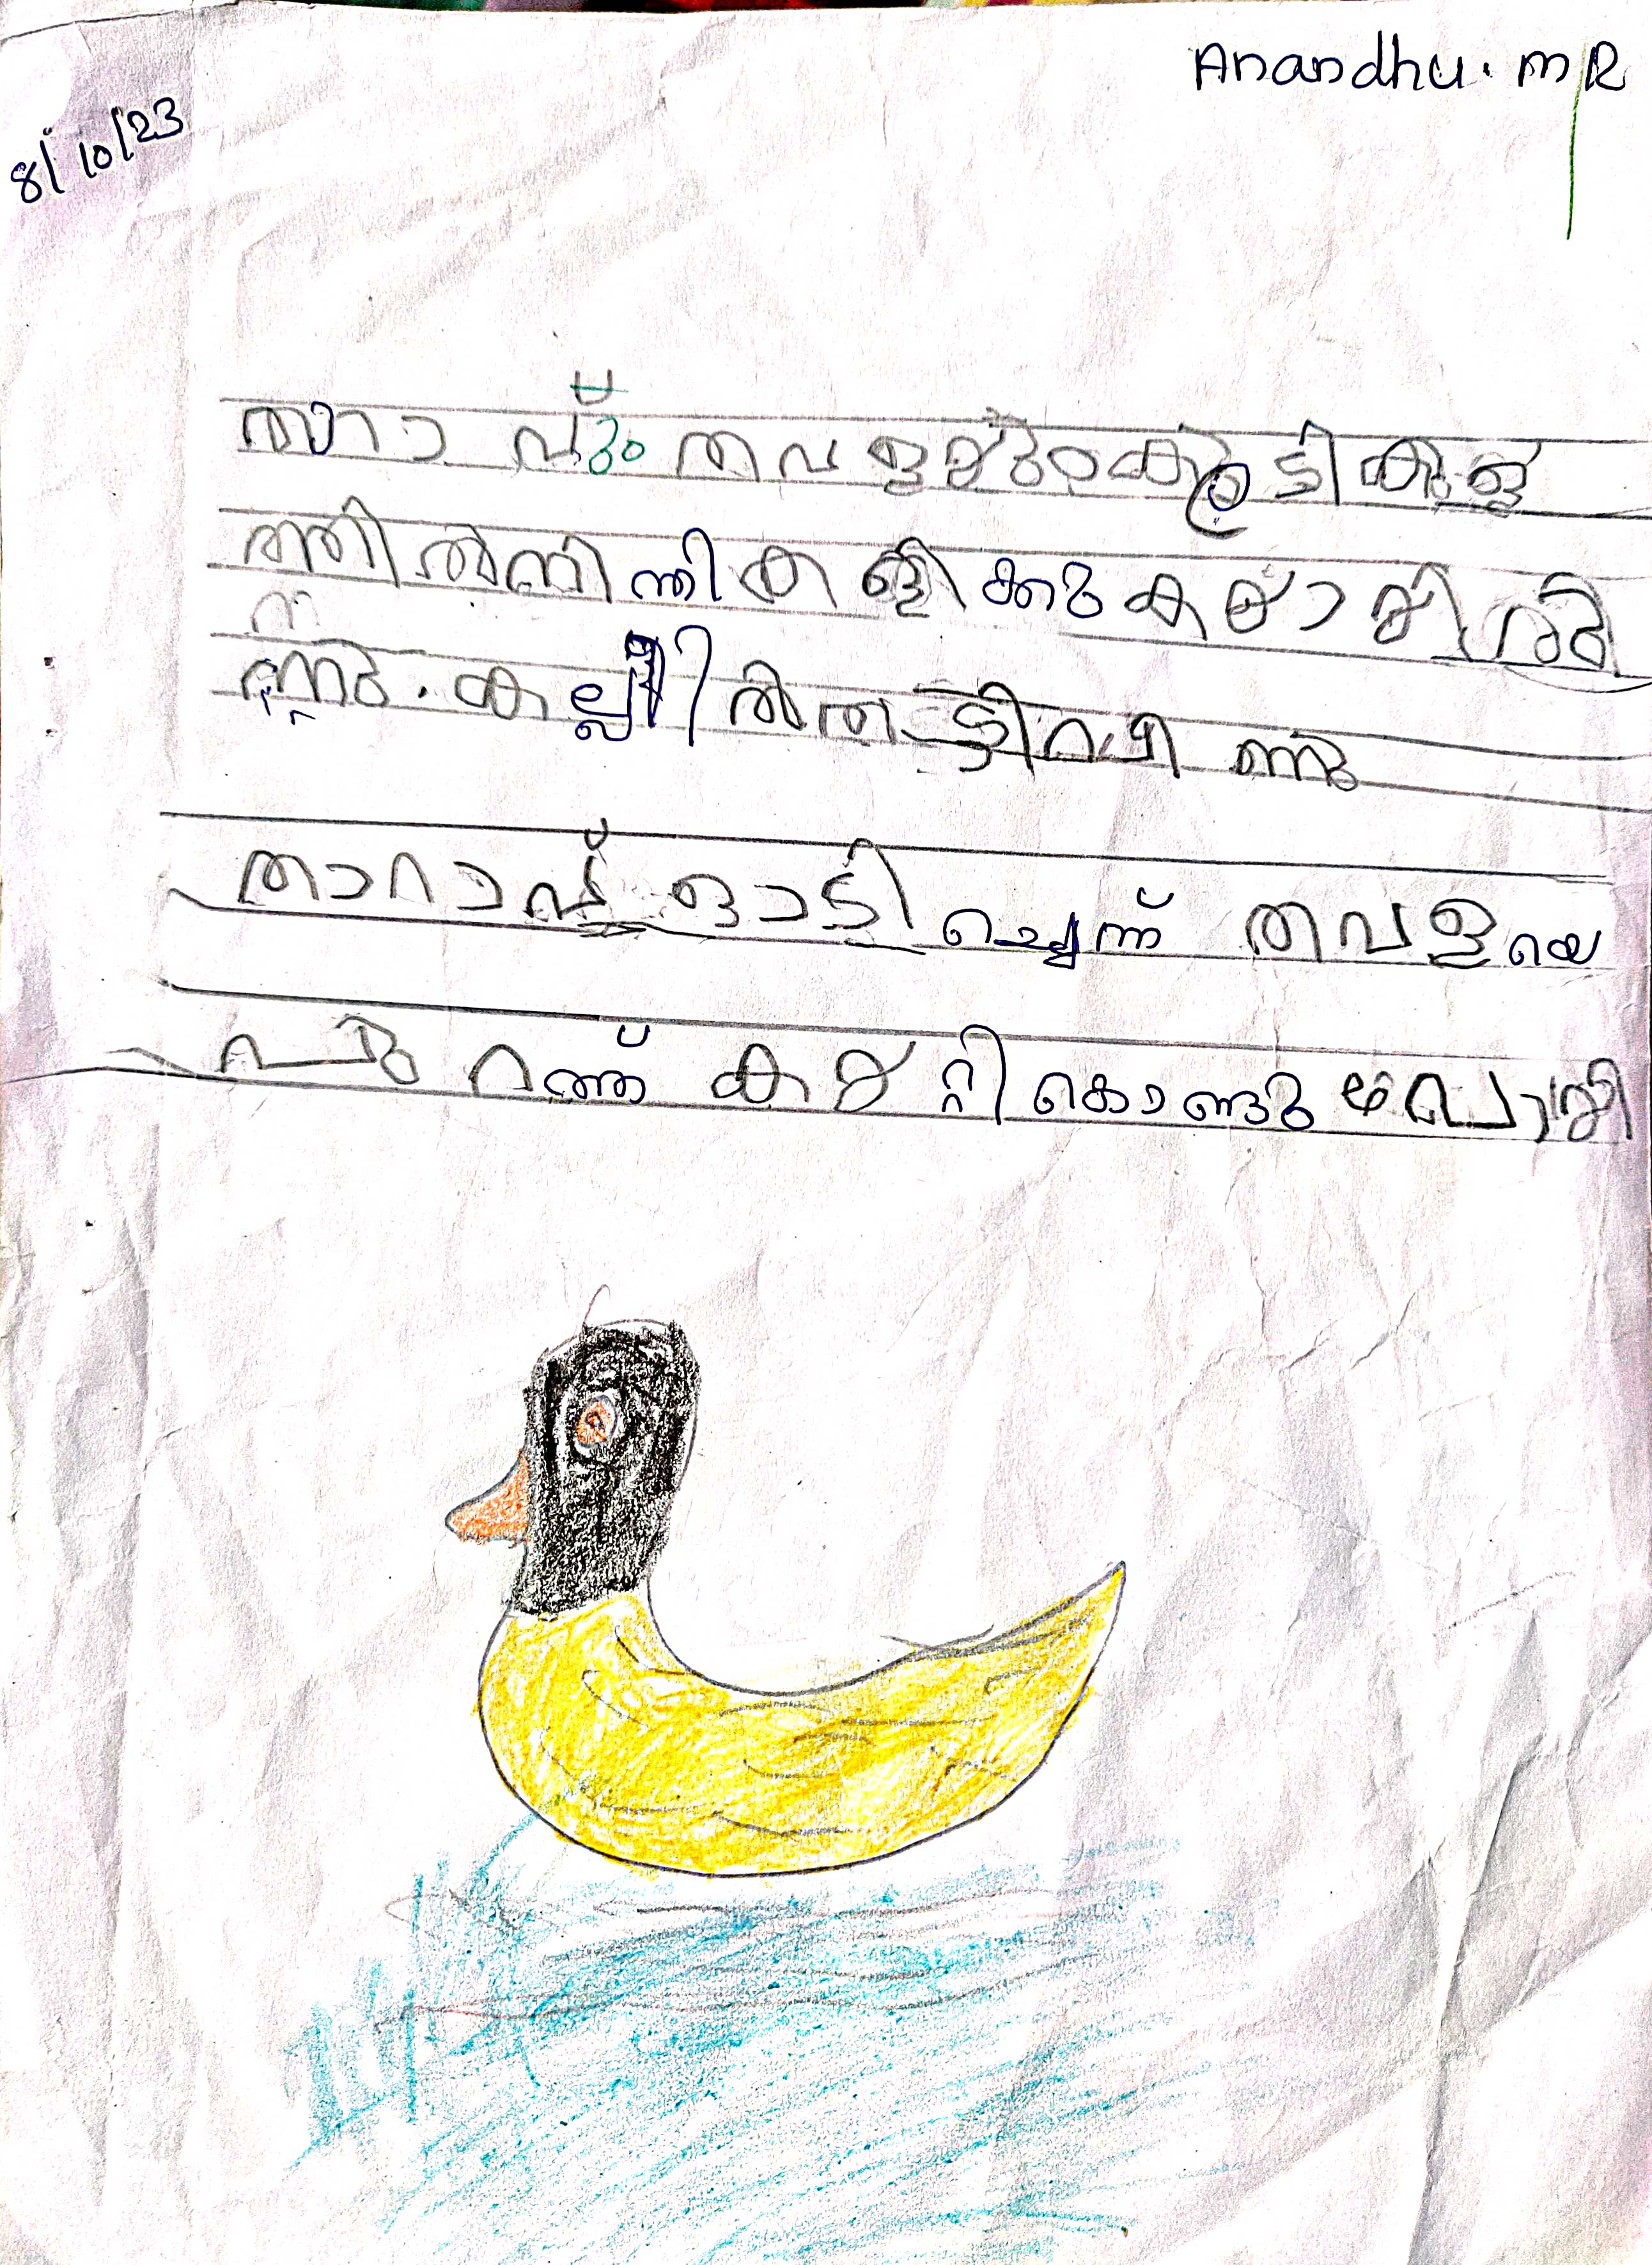 Anandhu. m R
8/10/23
താറാവും തവളയും കൂടി കുള
ത്തിൽ നീന്തി കളിക്കുകയായിരു
ന്നു. കല്ലിൽ തട്ടി വീണു
താറാവ് ഓടി ചെന്ന് തവളയെ
പുറത്ത് കയറ്റി കൊണ്ടു പോയി